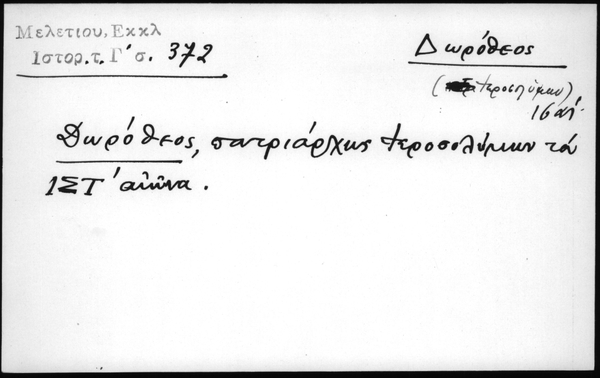 Μελετίου, Εκκλ
Ιστορ. τ. Γ' σ. 372
Δωρόθεος
(Ιεροσολύμων)
16 αἰ.
Δωρόθεος, πατριάρχης Ιεροσολύμων τοῦ
ΙΣΤ' αἰῶνα.